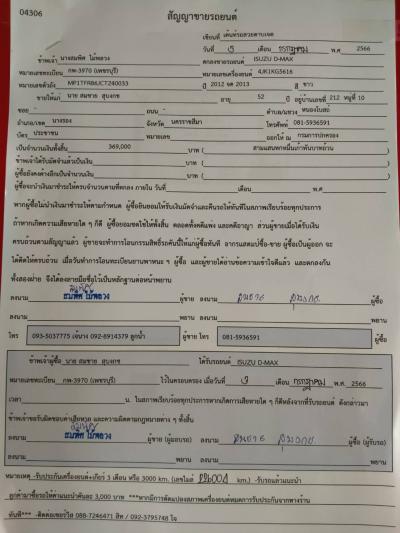 04306
สัญญาขายรถยนต์
เขียนที่ เต้นท์รถสวยตาบเจต
วันที่ 5 เดือน กรกฎาคม พ.ศ. 2566
ข้าพเจ้า นางสมพิศ ไม้พลวง ตกลงขายรถยนต์ ISUZU D-MAX
หมายเลขทะเบียน กพ-3970 (เพชรบุรี) หมายเลขเครื่องยนต์ 4JK1KG3616
หมายเลขตัวถัง MP1TFR86JCT240033 ปี 2012 จด 2013 สี ขาว
ขายให้แก่ นาย สมชาย สุบงกช อายุ 52 ปี อยู่บ้านเลขที่ 212 หมู่ที่ 10
ซอย - ถนน - ตำบล/แขวง หนองโบสถ์
อำเภอ/เขต นางรอง จังหวัด นครราชสีมา โทรศัพท์ 081-5936591
บัตร ประชาชน หมายเลข ออกให้ ณ กรมการปกครอง
เป็นจำนวนเงินทั้งสิ้น 369,000 บาท ( สามแสนหกหมื่นเก้าพันบาทถ้วน )
ข้าพเจ้าได้รับมัดจำแล้วเป็นเงิน บาท ( )
ผู้ซื้อยังคงค้างอีกเป็นจำนวนเงิน บาท ( )
ผู้ซื้อจะนำเงินมาชำระให้ครบจำนวนตามที่ตกลง ภายใน วันที่ เดือน พ.ศ.
หากผู้ซื้อไม่นำเงินมาชำระให้ตามกำหนด ผู้ซื้อยินยอมให้ริบเงินมัดจำและคืนรถให้ทันทีในสภาพเรียบร้อยทุกประการ
ถ้าหากเกิดความเสียหายใด ๆ ก็ดี ผู้ซื้อยอมชดใช้ให้ทั้งสิ้น ตลอดทั้งคดีแพ่ง และคดีอาญา ส่วนผู้ขายเมื่อได้รับเงิน
ครบถ้วนตามสัญญาแล้ว ผู้ขายจะทำการโอนกรรมสิทธิ์รถคันนี้ให้แก่ผู้ซื้อทันที อากรแสตมป์ซื้อ-ขาย ผู้ซื้อเป็นผู้ออก จะ
ทั้งสองฝ่าย จึงได้ลงลายมือชื่อไว้เป็นหลักฐานต่อหน้าพยาน
ลงนาม สมพิศ ไม้พลวง ผู้ขาย ลงนาม สมชาย สุบงกช ผู้ซื้อ
ลงนาม พยาน ลงนาม พยาน
โทร 093-5037775 เจ๊นาง 092-8914379 ลูกน้ำ ผู้ขาย โทร 081-5936591
ข้าพเจ้าผู้ซื้อ นาย สมชาย สุบงกช ได้รับรถยนต์ ISUZU D-MAX
หมายเลขทะเบียน กพ-3970 (เพชรบุรี) ไว้ในครอบครอง เมื่อวันที่ 5 เดือน กรกฎาคม พ.ศ. 2566
เวลา น. ในสภาพเรียบร้อยทุกประการหากเกิดการเสียหายใด ๆ ก็ดีหลังจากที่รับรถยนต์ ดังกล่าวมา
ข้าพเจ้าขอรับผิดชอบค่าเสียหาย และความผิดตามกฎหมายต่าง ๆ ทั้งสิ้น
ลงนาม สมพิศ ไม้พลวง ผู้ขาย (ผู้มอบรถ) ลงนาม สมชาย สุบงกช ผู้ซื้อ (ผู้รับรถ)
ลงนาม พยาน ลงนาม พยาน
หมายเหตุ -รับประกันเครื่องยนต์+เกียร์ 3 เดือน หรือ 3000 km. (เลขไมล์ km.) -รับรถแล้วแนะนำ
ลูกค้ามาซื้อรถให้ค่าแนะนำคันละ 3,000 บาท ***หากมีการดัดแปลงสภาพเครื่องยนต์หมดการรับประกันจากทางร้าน
ทันที*** -ติดต่อเซอร์วิส 088-7246471 สิท / 092-3795748 โจ